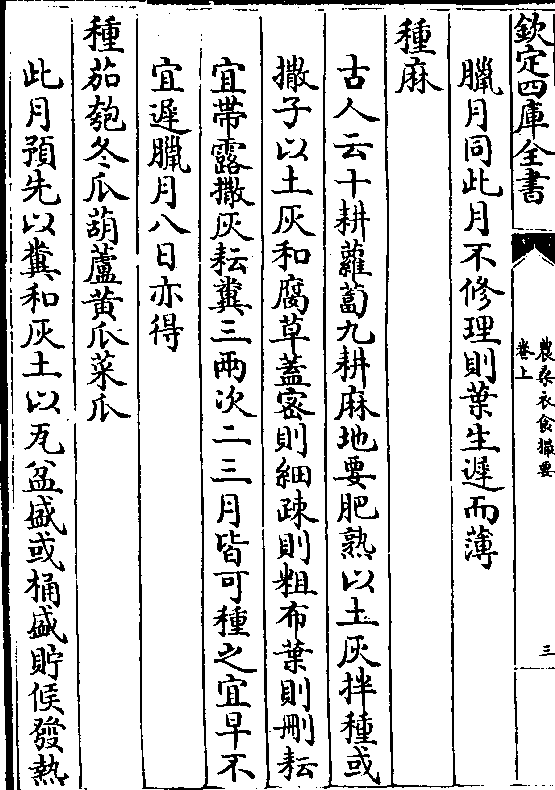 欽定四庫全書
農桑衣食撮要
卷上
三
臘月同此月不修理則葉生遲而薄
種麻
古人云十耕蘿蔔九耕麻地要肥熟以土灰拌種或
撒子以土灰和腐草蓋密則細疎則粗布葉則刪耘
宜帶露撒灰耘糞三兩次二三月皆可種之宜早不
宜遲臘月八日亦得
種茄匏冬瓜葫蘆黄瓜菜瓜
此月預先以糞和灰土以瓦盆盛或桶盛貯候發熱